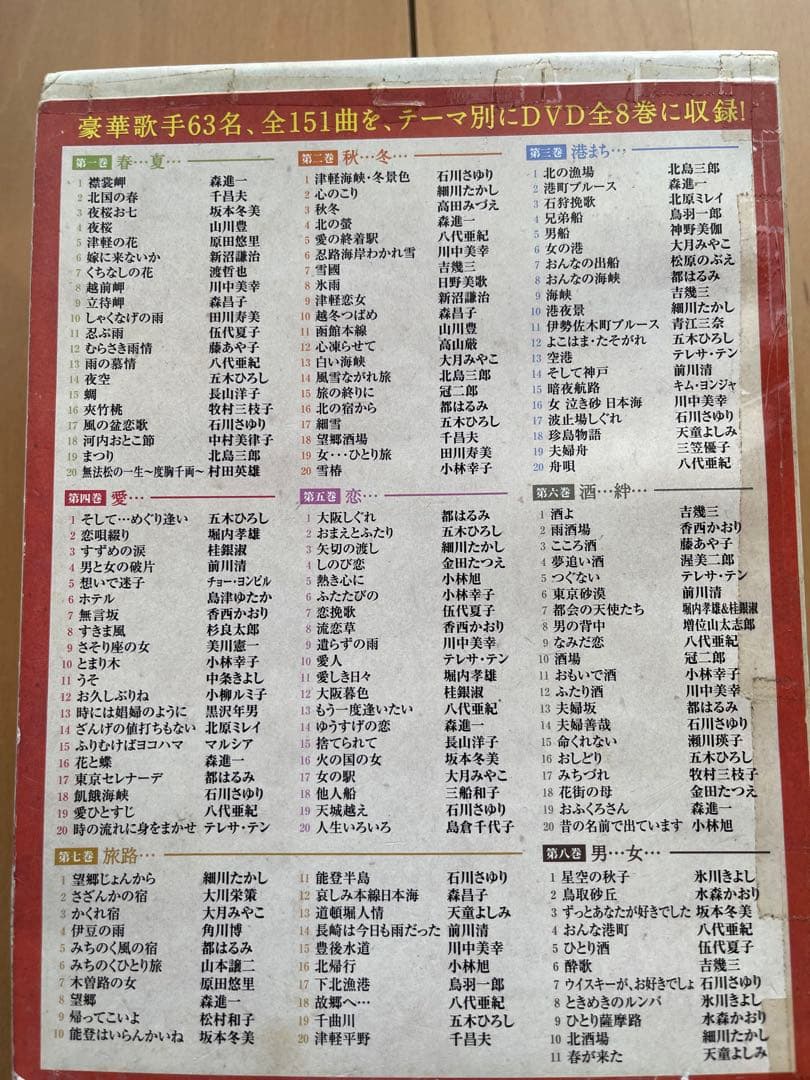 豪華歌手63名、全151曲を、テーマ別にDVD全8巻に収録!
第一巻 春…夏…
1 襟裳岬 森進一
2 北国の春 千昌夫
3 夜桜お七 坂本冬美
4 夜桜 山川豊
5 津軽の花 原田悠里
6 嫁に来ないか 新沼謙治
7 くちなしの花 渡哲也
8 越前岬 川中美幸
9 立待岬 森昌子
10 しゃくなげの雨 田川寿美
11 忍ぶ雨 伍代夏子
12 むらさき雨情 藤あや子
13 雨の慕情 八代亜紀
14 夜空 五木ひろし
15 蜩 長山洋子
16 夾竹桃 牧村三枝子
17 風の盆恋歌 石川さゆり
18 河内おとこ節 中村美律子
19 まつり 北島三郎
20 無法松の一生～度胸千両～ 村田英雄
第二巻 秋…冬…
1 津軽海峡・冬景色 石川さゆり
2 心のこり 細川たかし
3 秋冬 高田みづえ
4 北の螢 森進一
5 愛の終着駅 八代亜紀
6 忍路海岸わかれ雪 川中美幸
7 雪國 吉幾三
8 氷雨 日野美歌
9 津軽恋女 新沼謙治
10 越冬つばめ 森昌子
11 函館本線 山川豊
12 心凍らせて 高山厳
13 白い海峡 大月みやこ
14 風雪ながれ旅 北島三郎
15 旅の終りに 冠二郎
16 北の宿から 都はるみ
17 細雪 五木ひろし
18 望郷酒場 千昌夫
19 女・・・ひとり旅 田川寿美
20 雪椿 小林幸子
第三巻 港まち…
1 北の漁場 北島三郎
2 港町ブルース 森進一
3 石狩挽歌 北原ミレイ
4 兄弟船 鳥羽一郎
5 男船 神野美伽
6 女の港 大月みやこ
7 おんなの出船 松原のぶえ
8 おんなの海峡 都はるみ
9 海峡 吉幾三
10 港夜景 細川たかし
11 伊勢佐木町ブルース 青江三奈
12 よこはま・たそがれ 五木ひろし
13 空港 テレサ・テン
14 そして神戸 前川清
15 暗夜航路 キム・ヨンジャ
16 女 泣き砂 日本海 川中美幸
17 波止場しぐれ 石川さゆり
18 珍島物語 天童よしみ
19 夫婦舟 三笠優子
20 舟唄 八代亜紀
第四巻 愛…
1 そして…めぐり逢い 五木ひろし
2 恋唄綴り 堀内孝雄
3 すずめの涙 桂銀淑
4 男と女の破片 前川清
5 想いで迷子 チョー・ヨンピル
6 ホテル 島津ゆたか
7 無言坂 香西かおり
8 すきま風 杉良太郎
9 さそり座の女 美川憲一
10 とまり木 小林幸子
11 うそ 中条きよし
12 お久しぶりね 小柳ルミ子
13 時には娼婦のように 黒沢年男
14 ざんげの値打ちもない 北原ミレイ
15 ふりむけばヨコハマ マルシア
16 花と蝶 森進一
17 東京セレナーデ 都はるみ
18 飢餓海峡 石川さゆり
19 愛ひとすじ 八代亜紀
20 時の流れに身をまかせ テレサ・テン
第五巻 恋…
1 大阪しぐれ 都はるみ
2 おまえとふたり 五木ひろし
3 矢切の渡し 細川たかし
4 しのび恋 金田たつえ
5 熱き心に 小林旭
6 ふたたびの 小林幸子
7 恋挽歌 伍代夏子
8 流恋草 香西かおり
9 遣らずの雨 川中美幸
10 愛人 テレサ・テン
11 愛しき日々 堀内孝雄
12 大阪暮色 桂銀淑
13 もう一度逢いたい 八代亜紀
14 ゆうすげの恋 森進一
15 捨てられて 長山洋子
16 火の国の女 坂本冬美
17 女の駅 大月みやこ
18 他人船 三船和子
19 天城越え 石川さゆり
20 人生いろいろ 島倉千代子
第六巻 酒…絆…
1 酒よ 吉幾三
2 雨酒場 香西かおり
3 こころ酒 藤あや子
4 夢追い酒 渥美二郎
5 つぐない テレサ・テン
6 東京砂漠 前川清
7 都会の天使たち 堀内孝雄&桂銀淑
8 男の背中 増位山太志郎
9 なみだ恋 八代亜紀
10 酒場 冠二郎
11 おもいで酒 小林幸子
12 ふたり酒 川中美幸
13 夫婦坂 都はるみ
14 夫婦善哉 石川さゆり
15 命くれない 瀬川瑛子
16 おしどり 五木ひろし
17 みちづれ 牧村三枝子
18 花街の母 金田たつえ
19 おふくろさん 森進一
20 昔の名前で出ています 小林旭
第七巻 旅路…
1 望郷じょんから 細川たかし
2 さざんかの宿 大川栄策
3 かくれ宿 大月みやこ
4 伊豆の雨 角川博
5 みちのく風の宿 都はるみ
6 みちのくひとり旅 山本譲二
7 木曽路の女 原田悠里
8 望郷 森進一
9 帰ってこいよ 松村和子
10 能登はいらんかいね 坂本冬美
11 能登半島 石川さゆり
12 哀しみ本線日本海 森昌子
13 道頓堀人情 天童よしみ
14 長崎は今日も雨だった 前川清
15 豊後水道 川中美幸
16 北帰行 小林旭
17 下北漁港 鳥羽一郎
18 故郷へ… 八代亜紀
19 千曲川 五木ひろし
20 津軽平野 千昌夫
第八巻 男…女…
1 星空の秋子 氷川きよし
2 鳥取砂丘 水森かおり
3 ずっとあなたが好きでした 坂本冬美
4 おんな港町 八代亜紀
5 ひとり酒 伍代夏子
6 酔歌 吉幾三
7 ウイスキーが、お好きでしょ 石川さゆり
8 ときめきのルンバ 氷川きよし
9 ひとり薩摩路 水森かおり
10 北酒場 細川たかし
11 春が来た 天童よしみ